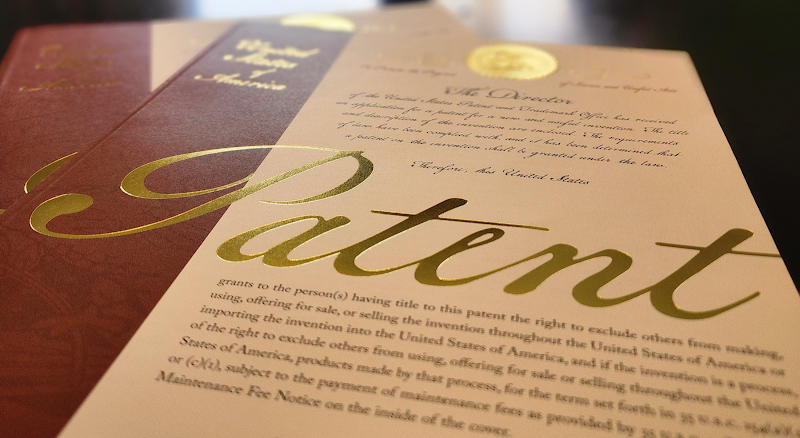 United
States
of
America
The Director
of the United States Patent and Trademark Office has received
an application for a patent for a new and useful invention. The title
and description of the invention are enclosed. The requirements
of law have been complied with and it has been determined that
a patent on the invention shall be granted under the law.
Therefore, this United States
Patent
grants to the person(s) having title to this patent the right to exclude others from making,
using, offering for sale, or selling the invention throughout the United States of America or
importing the invention into the United States of America, and if the invention is a process,
of the right to exclude others from using, offering for sale or selling throughout the United
States of America, products made by that process, for the term set forth in 35 U.S.C.
or (c)(1), subject to the payment of maintenance fees as provided by 35 U.S.C.
Maintenance Fee Notice on the inside of the cover.